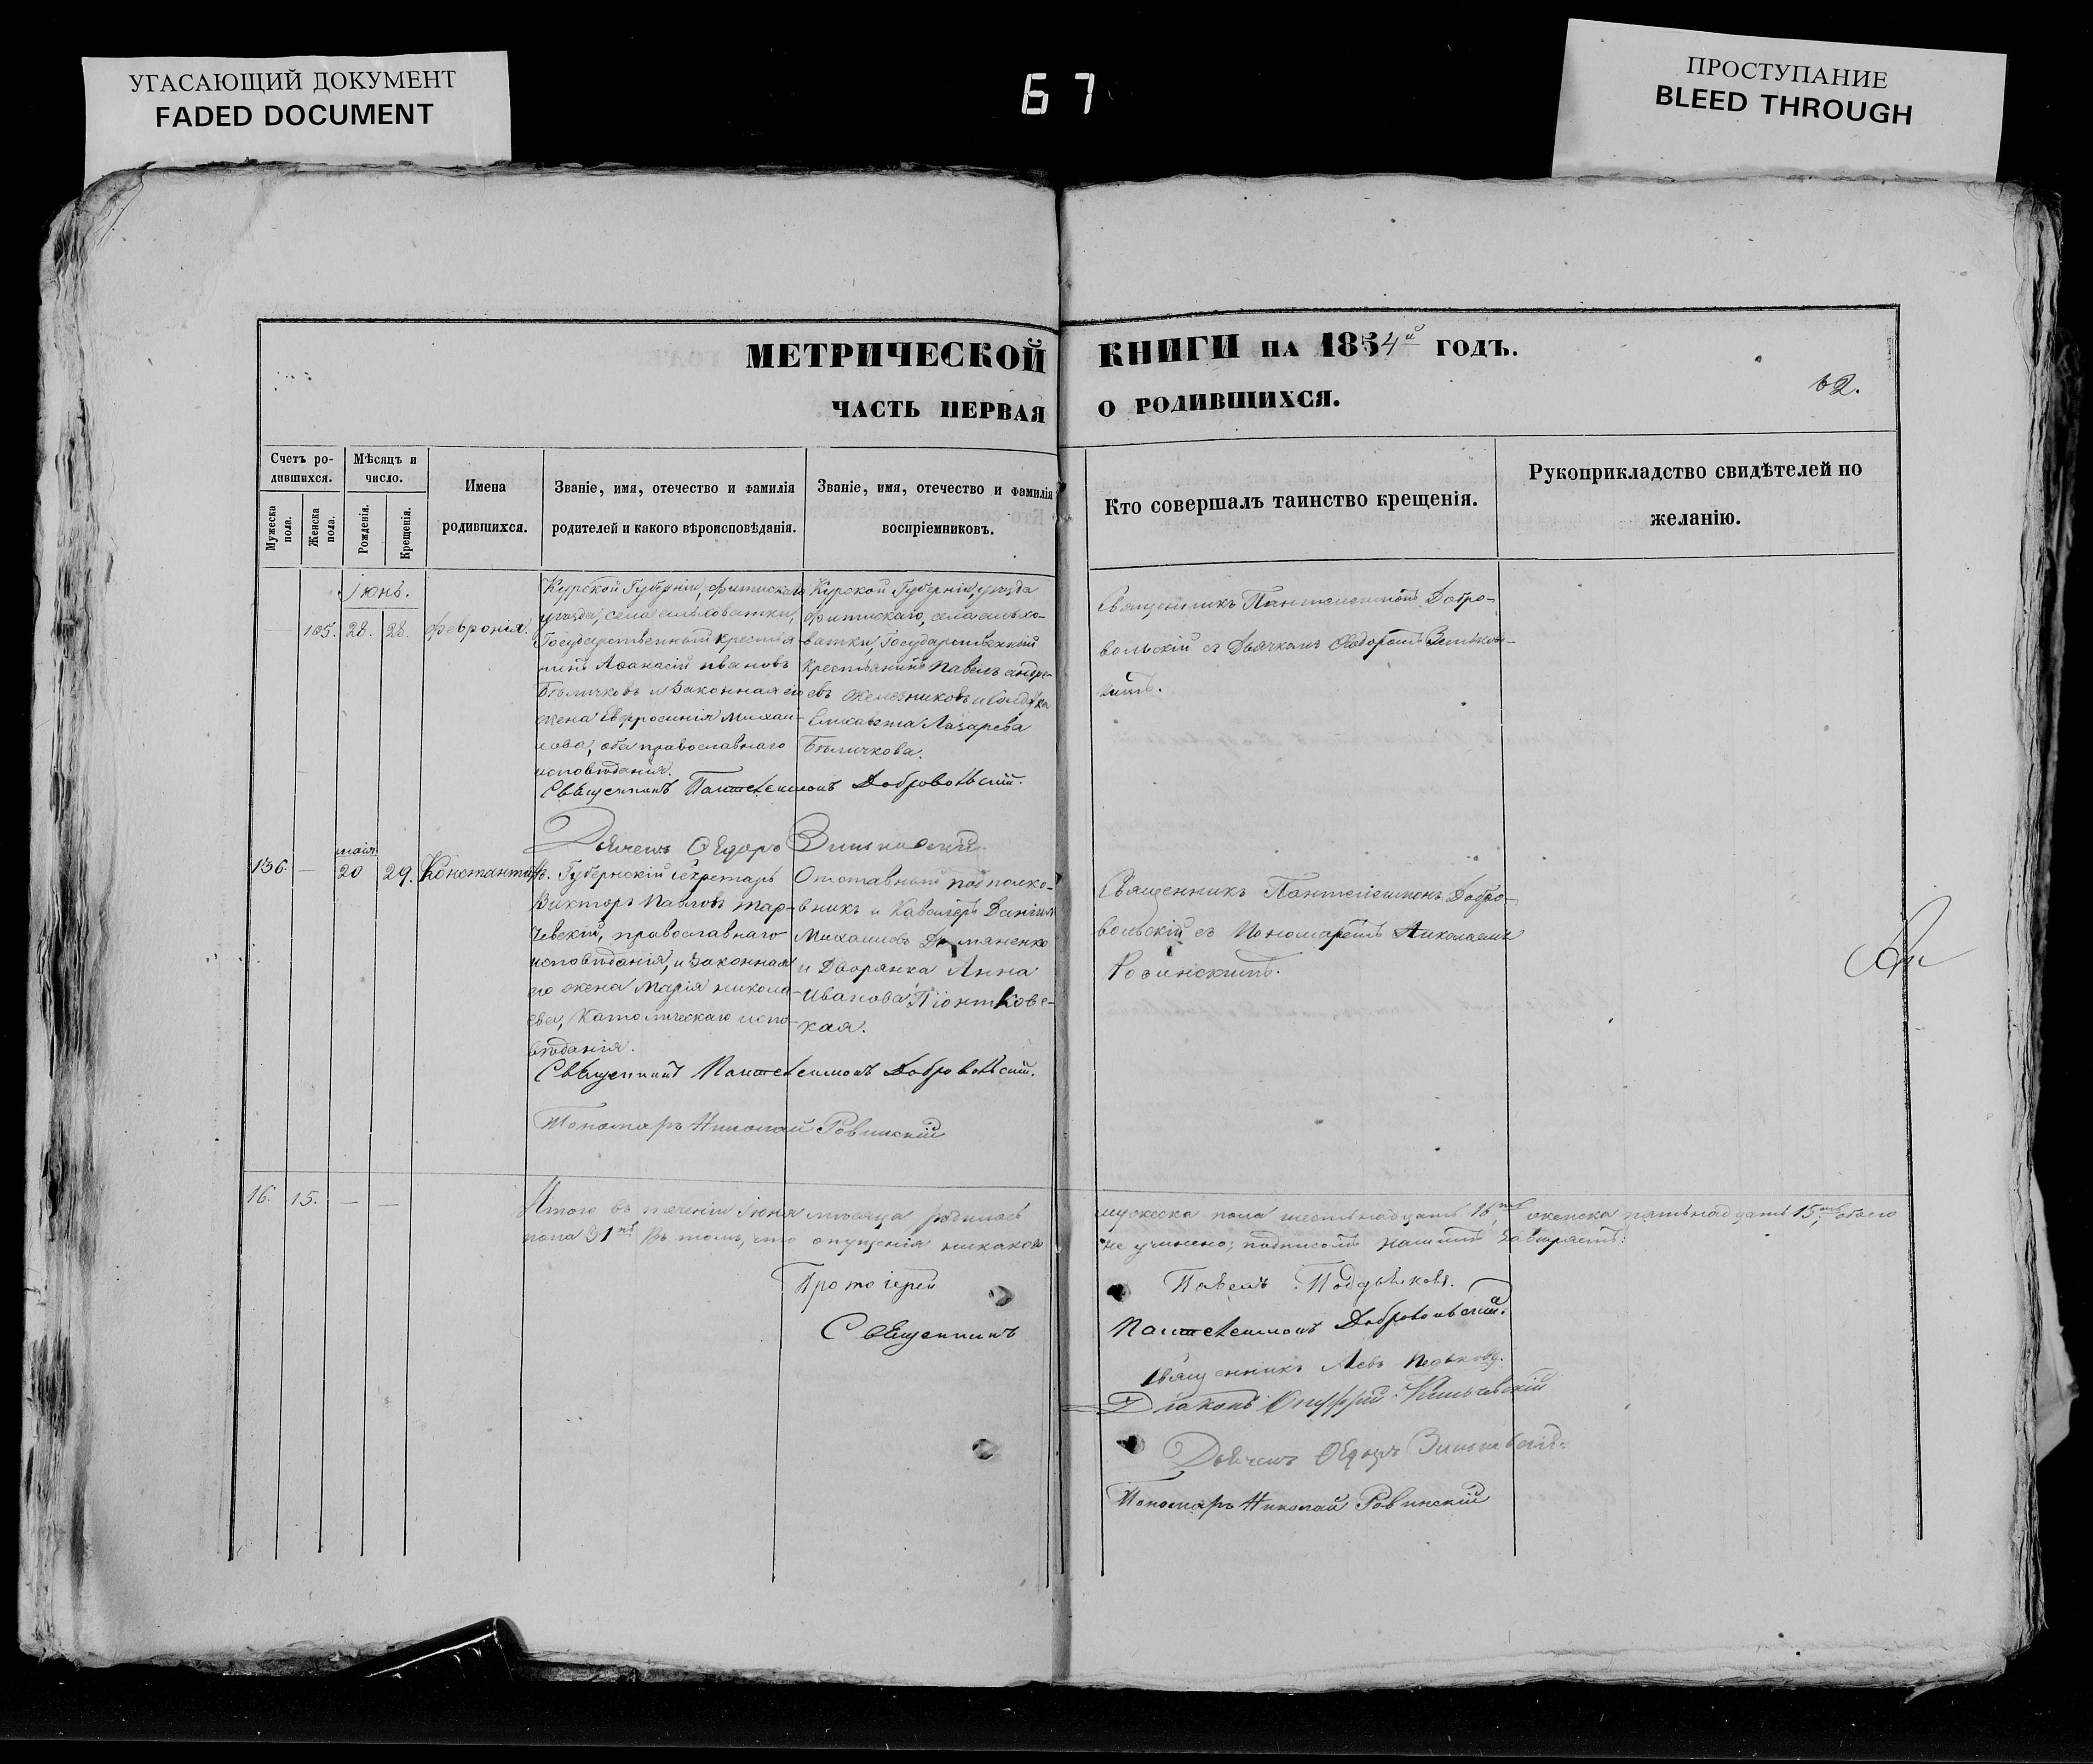 УГАСАЮЩИЙ ДОКУМЕНТ
FADED DOCUMENT
67
ПРОСТУПАНИЕ
BLEED THROUGH
МЕТРИЧЕСКОЙ КНИГИ НА 1854й ГОДЪ.
62.
ЧАСТЬ ПЕРВАЯ О РОДИВШИХСЯ.
Счетъ ро-
дившихся.
Мужеска
пола.
Женска
пола.
Мѣсяцъ и
число.
Рожденія.
Крещенія.
Имена
родившихся.
Званіе, имя, отечество и фамилія
родителей и какого вѣроисповѣданія.
Званіе, имя, отечество и фамилія
воспріемниковъ.
Кто совершалъ таинство крещенія.
Рукоприкладство свидѣтелей по
желанію.
Іюнь.
— 105. 28. 28. Февронія.
Курской Губерніи,
уѣзда, села
Государственный крестья-
нинъ Аѳанасій Ивановъ
Бѣличковъ и Законная его
жена Евфросинія Михаи-
лова, оба православнаго
исповѣданія.
Курской Губерніи, уѣзда
села
ватки, Государственный
Крестьянинъ Павелъ Андре-
евъ Железниковъ и
Елисавета Лазарева
Бѣличкова.
Священникъ Пантелеимонъ Добро-
вольскій съ Дьячкомъ Ѳедоромъ Зеньков-
Священникъ Пантелеимонъ Добровольскій.
Дьячекъ Ѳедоръ
маія
136. — 20 29. Константинъ.
Губернскій Секретарь
Викторъ Павловъ Тар-
чевскій, православнаго
исповѣданія, и Законная
его жена Марія Никола-
ева, Католическаго испо-
вѣданія.
Отставный подполко-
вникъ и Кавалеръ Даніилъ
Михаиловъ
и Дворянка Анна
Иванова Піонтковс-
кая.
Священникъ Пантелеимонъ Добро-
вольскій съ Пономаремъ Николаемъ
Ровинскимъ.
Священникъ Пантелеимонъ Добровольскій.
Пономарь Николай Ровинскій
16. 15. — —
Итого въ теченіи Іюня мѣсяца родилось мужеска пола шестьнадцать 16, женска пятьнадцать 15, обоего
пола 31 Въ томъ, что опущенія никакого не учинено; подписомъ нашимъ завѣряемъ:
Протоіерей Павелъ
Священникъ Пантелеимонъ Добровольскій.
Священникъ Левъ
Діаконъ
Дьячекъ Ѳедоръ
Пономарь Николай Ровинскій